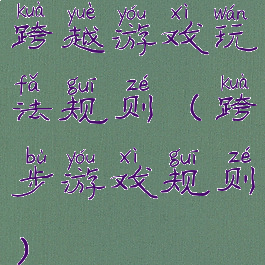 kuà yuè yóu xì wán
跨越游戏玩
fǎ guī zé kuà
法规则（跨
bù yóu xì guī zé
步游戏规则
）